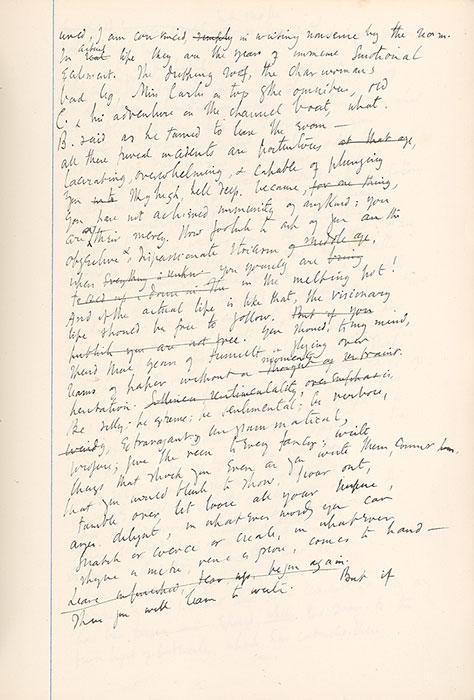 used, I am convinced, simply in writing nonsense by the ream.
In actual real life they are the years of immense emotional
excitement. The dripping roof, the charwoman's
bad leg, Miss Curtis on top of the omnibus, old
C. & his adventure on the channel boat, what
B. said as he turned to leave the room —
all these trivial incidents are portentous at that age,
lacerating, overwhelming, & capable of plunging
you into sky high, hell deep. because, for one thing,
you have not achieved immunity of any kind: you
are at their mercy. How foolish to ask of you an the
objective & dispassionate criticism of middle age,
when everything is unkn you yourself are being
tossed up & down in the in the melting pot!
And if the actual life is like that, the visionary
life should be free to follow. But if you
publish you are not free. You should, to my mind,
spend those years of tumult in flying over
reams of paper without a moments thought of restraint.
hesitation. sentimentality, over emphasis
Be silly: be extreme: be sentimental: be verbose,
wordy, extravagant, ungrammatical,
profuse; give the rein to every fancy; write
things that shock you even as you write them,
that you would blush to show. pour out,
tumble over, let loose all your
anger, delight, in whatever words you can
snatch or coerce or create, in whatever
rhyme or metre, verse or prose, comes to hand —
Leave unfinished, tear up, begin again.
Then you will learn to write. But if